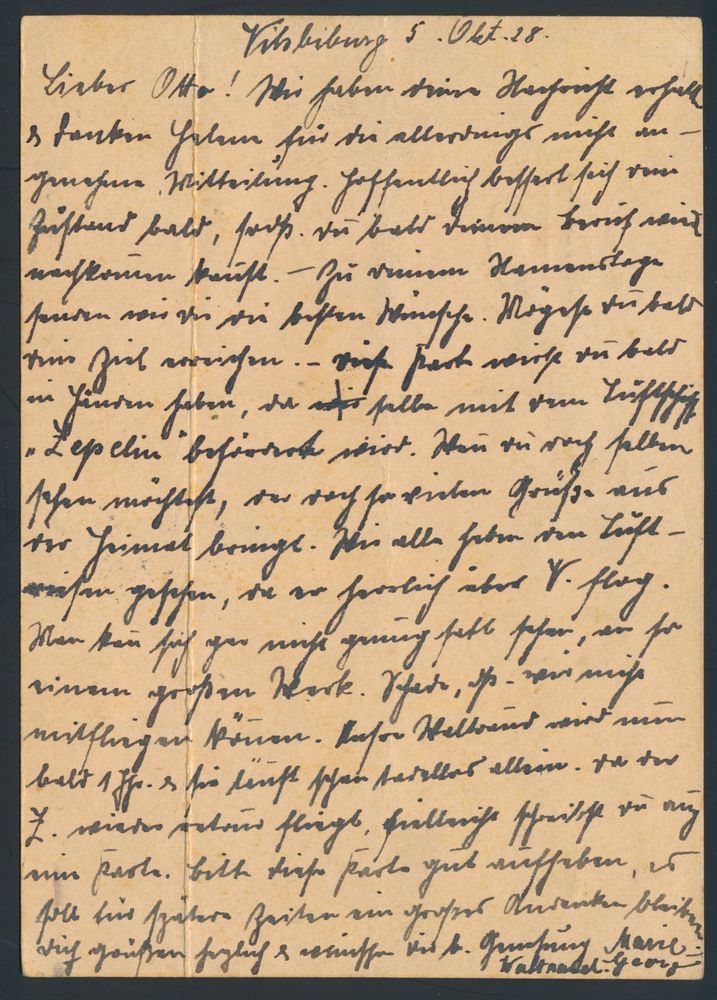 Vilsbiburg 5. Okt. 28.
Lieber Otto! Wir haben deine Nachricht erhalt
& danken Helene für die allerdings nicht an-
genehme Mitteilung. Hoffentlich bessert sich dein
Zustand bald, sodß. du bald deinem Beruf wied
nachkommen kannst. – Zu deinem Namenstage
senden wir dir die besten Wünsche. Mögest du bald
dein Ziel erreichen. – Diese Karte wirst du bald
in Händen haben, da selbe mit dem Luftschiff
"Zepelin" befördert wird. Wenn du doch selben
sehen möchtest, der doch so vielen Grüße aus
der Heimat bringt. Wir alle haben den Luft-
riesen gesehen, da er herrlich über V. flog.
Man kann sich gar nicht genug satt sehen, an so
einem großen Werk. Schade, dß. wir nicht
mitfliegen können. Unsre Waltraud wird nun
bald 1 Jhr. & sie läuft schon tadellos allein. Da der
Z. wieder retour fliegt, vielleicht schreibst du auch
eine Karte. Bitte diese Karte gut aufheben, es
soll für spätere Zeiten ein großes Andenken bleiben.
Dich grüßen herzlich & wünschen dir b. Genesung Marie
Waltraud. Georg